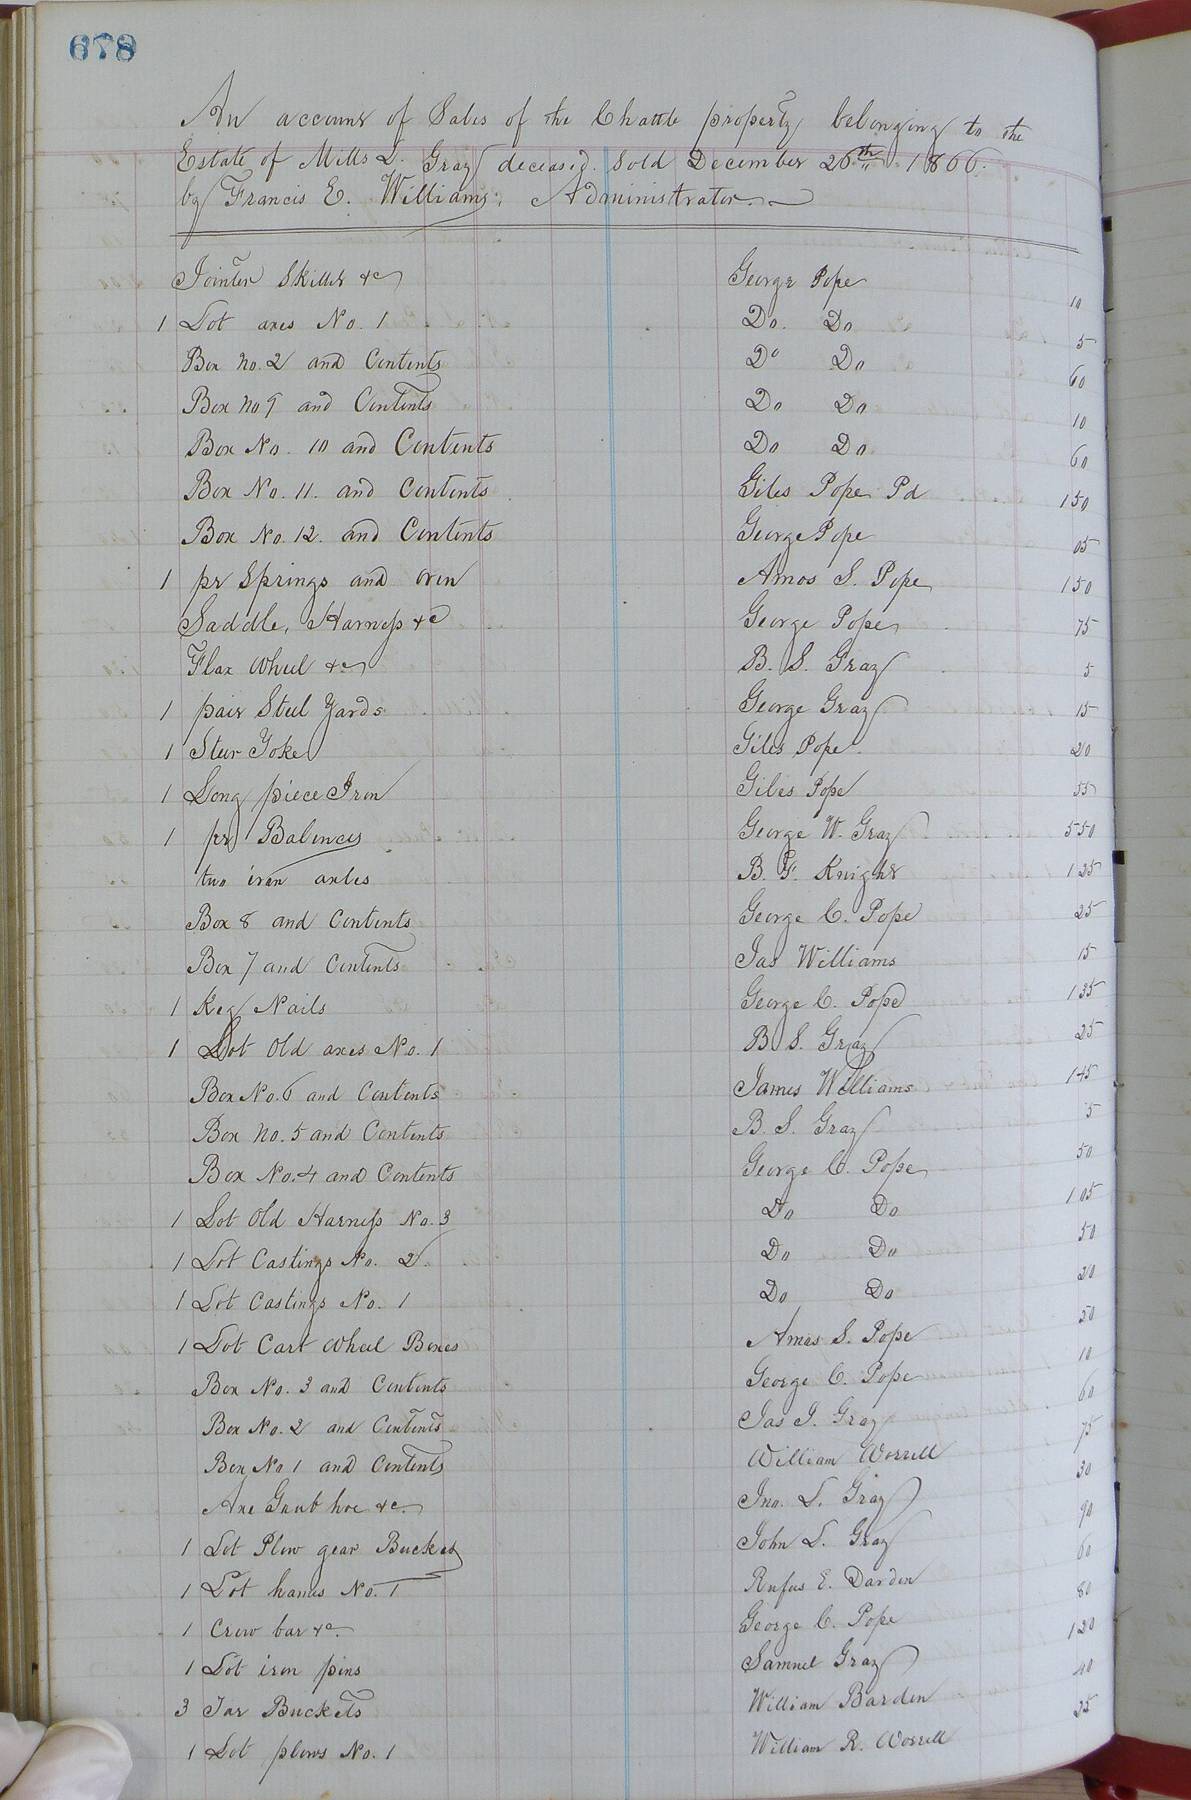 678
An account of Sales of the Chattle property belonging to the
Estate of Mills L. Gray deceased. Sold December 26th 1866.
by Francis E. Williams, Administrator.
Jointer Skillet &c George Pope 10
1 Lot axes No. 1 Do. Do 5
Box no. 2 and Contents Do Do 60
Box no 9 and Contents Do Do 10
Box No. 10 and Contents Do Do 60
Box No. 11. and Contents Giles Pope Pd 150
Box No. 12. and Contents George Pope 05
1 pr Springs and oven Amos S. Pope 150
Saddle, Harness &c George Pope 75
Flax Wheel &c B. S. Gray 5
1 pair Steel Yards George Gray 15
1 Steer Yoke Giles Pope 20
1 Long piece Iron Giles Pope 55
1 pr Balences George W. Gray 550
two iron axles B. F. Knight 125
Box 8 and Contents George C. Pope 25
Box 7 and Contents Jas Williams 15
1 Keg Nails George C. Pope 135
1 Lot Old axes No. 1 B. S. Gray 25
Box No. 6 and Contents James Williams 145
Box No. 5 and Contents B. S. Gray 5
Box No. 4 and Contents George C. Pope 50
1 Lot Old Harness No. 3 Do Do 105
1 Lot Castings No. 2 Do Do 50
1 Lot Castings No. 1 Do Do 20
1 Lot Cart Wheel Boxes Amos S. Pope 50
Box No. 3 and Contents George C. Pope 10
Box No. 2 and Contents Jas J. Gray 60
Box No 1 and Contents William Worrell 75
Axe Grub hoe &c. Jno. L. Gray 30
1 Lot Plow gear Bucket John L. Gray 90
1 Lot hames No. 1 Rufus E. Darden 60
1 Crow bar &c. George C. Pope 80
1 Lot iron pins Samuel Gray 120
3 Tar Buckets William Barden 40
1 Lot plows No. 1 William R. Worrell 25